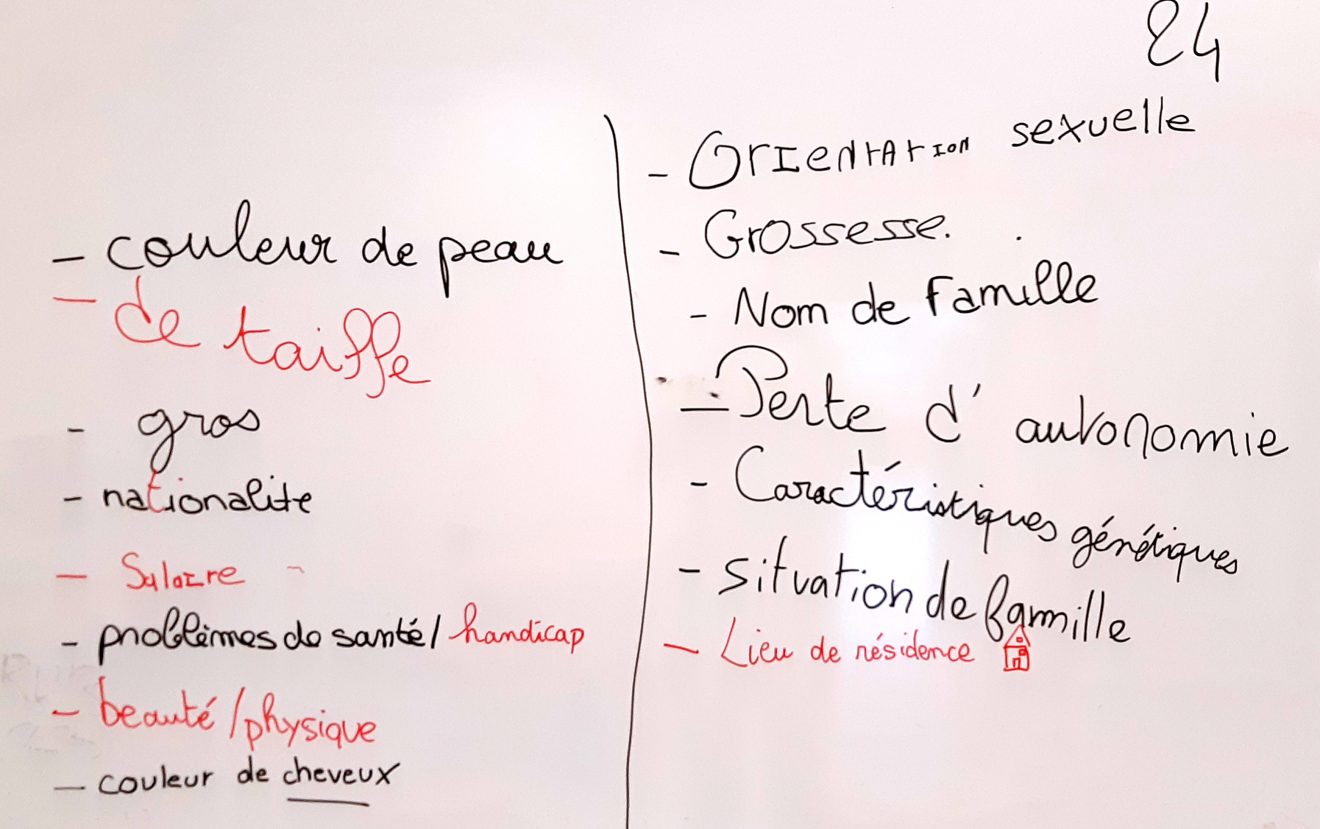 24
- couleur de peau
- de taiffe
- gros
- nationalite
- Salaire -
- problèmes de santé/ handicap
- beauté/physique
- couleur de cheveux
- Orientation sexuelle
- Grossesse.
- Nom de Famille
- Perte d'autonomie
- Caractéristiques génétiques
- situation de famille
- Lieu de résidence